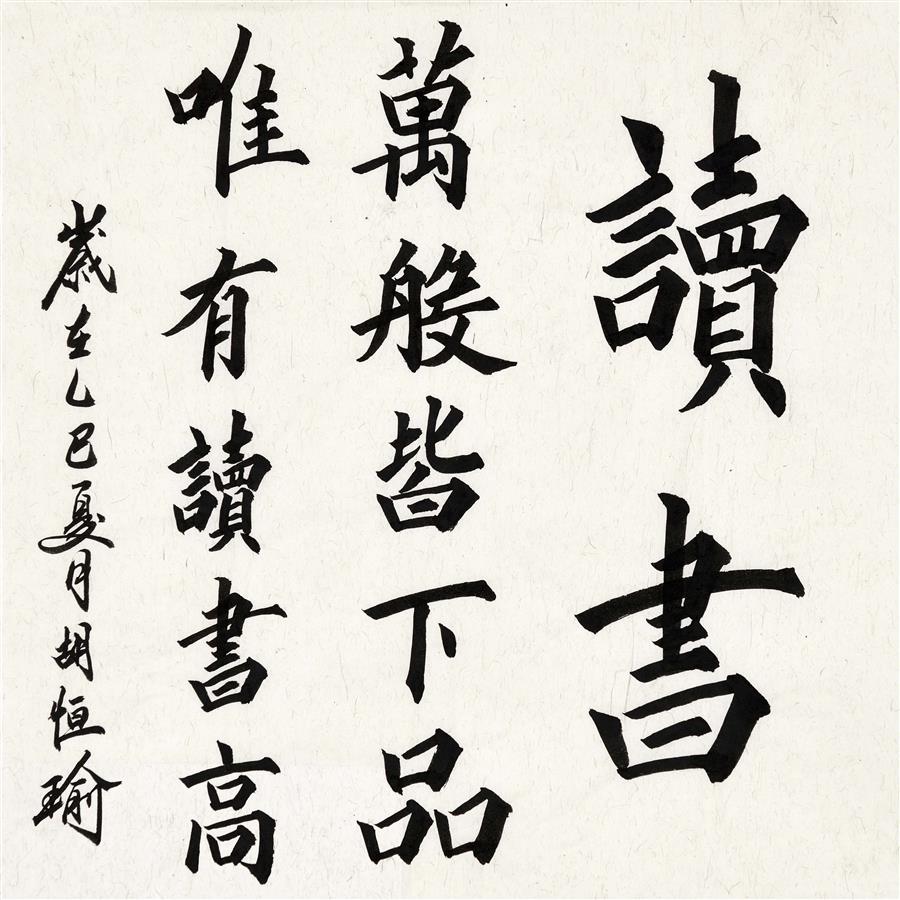 讀書
萬般皆下品
唯有讀書高
歲在乙巳夏月胡恒瑜